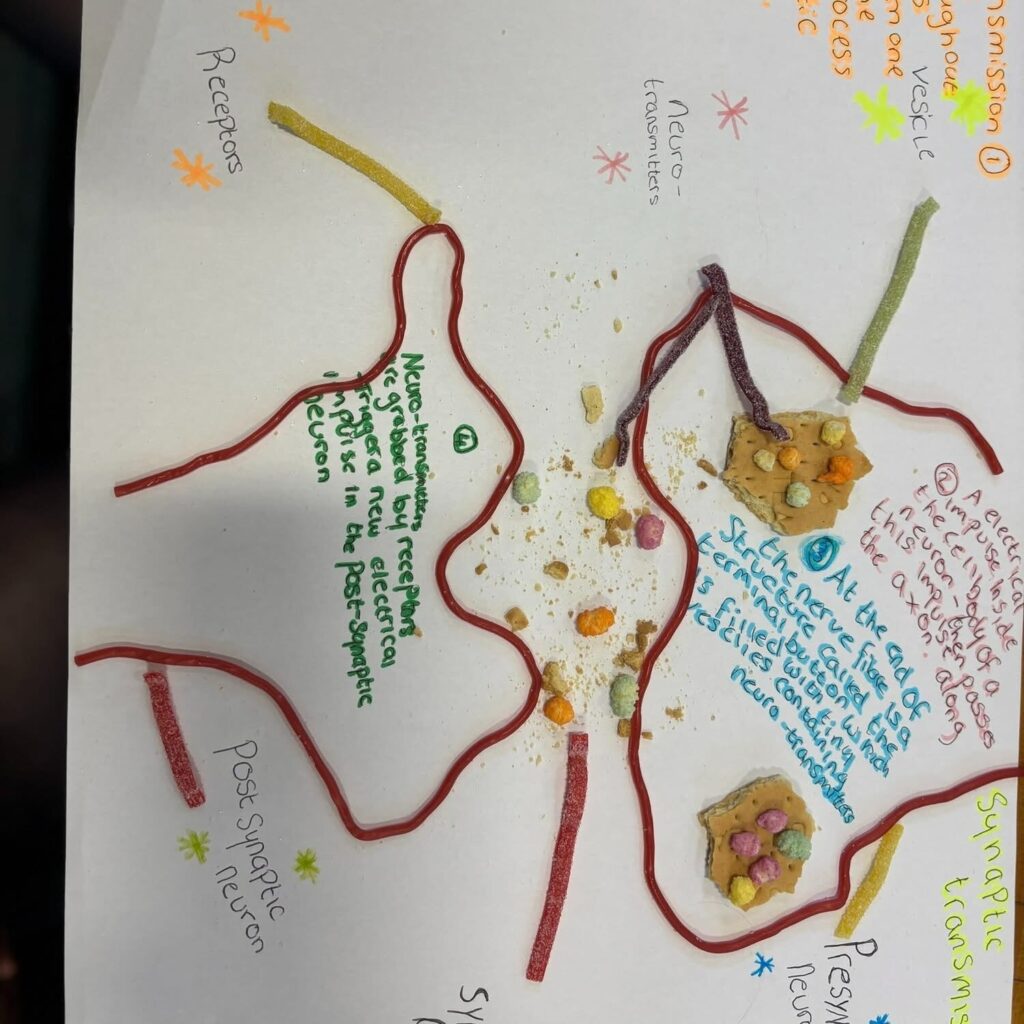 nsmission ①
ughout
m one
rocess
tic
Synaptic
transmis
vesicle
② A electrical
impulse inside
the cell body of a
neuron - then passes
this impulse along
the axon.
③ At the end of
the nerve fibre is a
structure called the
terminal button which
is filled with tiny
vesicles containing
neuro-transmitters
Presyn
neuro
Neuro-
transmitters
Sy
④
Neuro-transmitters
are grabbed by receptors
Trigger a new electrical
impulse in the post-synaptic
neuron
Receptors
Post Synaptic
neuron